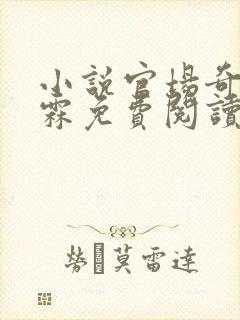 小說官場奇
霖免費閱讀
勞莫雷達